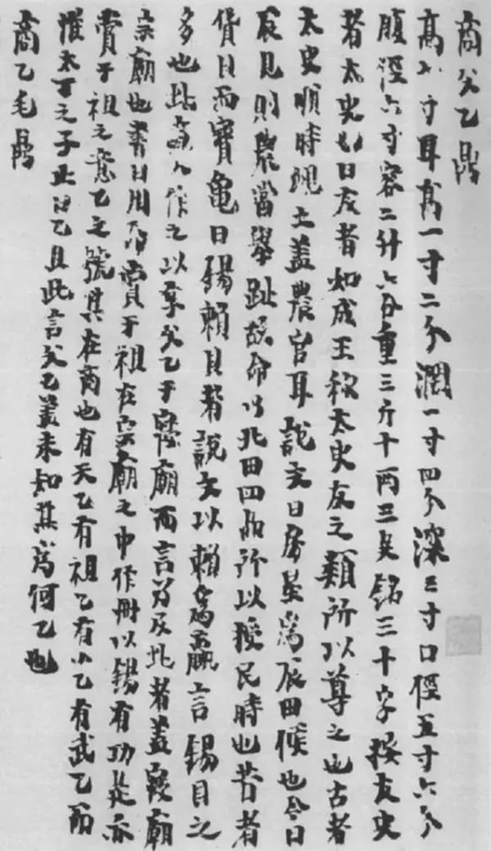 商父乙鼎
高六寸耳高一寸二分濶一寸四分深三寸口徑五寸六分
腹徑六寸容二升六合重三斤十兩三足銘三十字按友史
者太史也曰友者如成王稱太史友之類所以尊之也古者
太史順時覛土蓋農官耳說文曰房星爲辰田候也今曰
辰見則農當舉趾故命以北田四品所以授民時也昔者
貨貝而寶龜曰錫賴貝者說文以賴爲贏言錫貝之
多也此作之以享父乙于寢廟而言及北者蓋寢廟
宗廟也書曰用命賞于祖在宗廟之中作冊以錫有功是亦
賞于祖之意乙之號其在商也有天乙有祖乙有小乙有武乙而
惟太丁之子止曰乙且此言父乙蓋未知其爲何乙也
商乙毛鼎